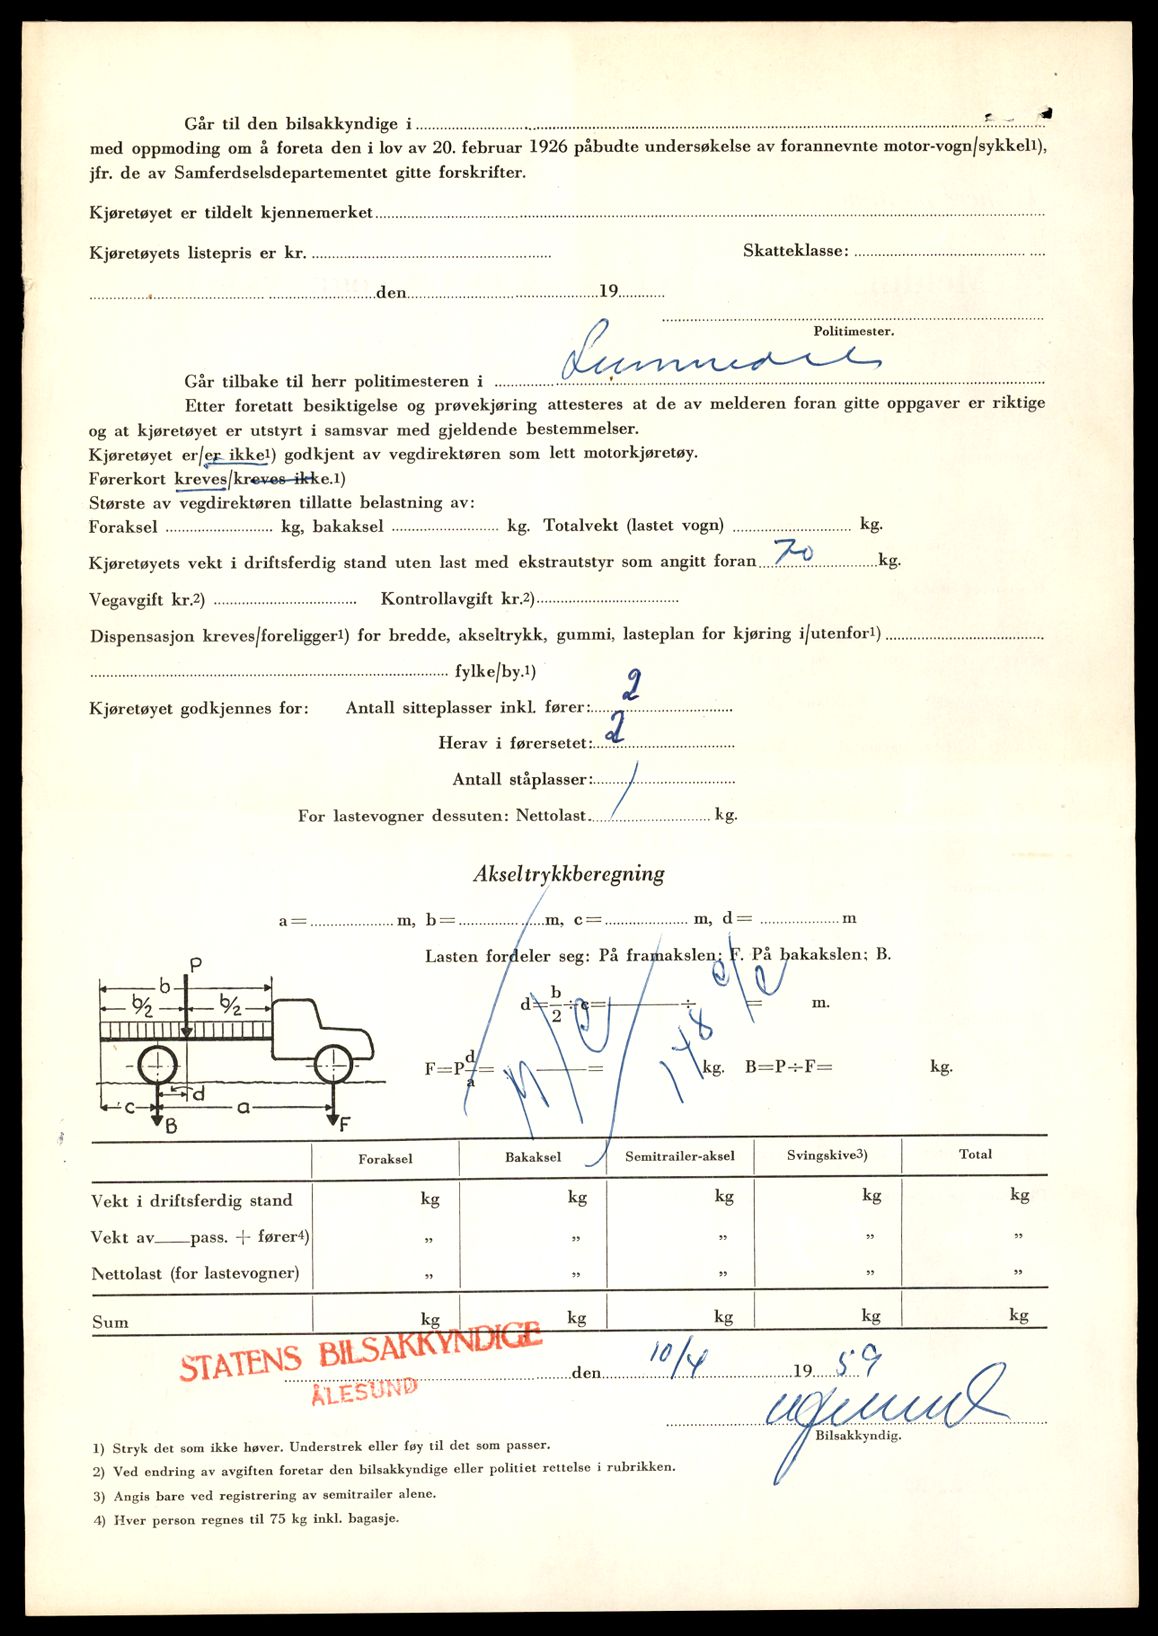 Går til den bilsakkyndige i
med oppmoding om å foreta den i lov av 20. februar 1926 påbudte undersøkelse av forannevnte motor-vogn/sykkel1),
jfr. de av Samferdselsdepartementet gitte forskrifter.
Kjøretøyet er tildelt kjennemerket
Kjøretøyets listepris er kr. Skatteklasse:
den 19
Politimester.
Går tilbake til herr politimesteren i
Etter foretatt besiktigelse og prøvekjøring attesteres at de av melderen foran gitte oppgaver er riktige
og at kjøretøyet er utstyrt i samsvar med gjeldende bestemmelser.
Kjøretøyet er/er ikke1) godkjent av vegdirektøren som lett motorkjøretøy.
Førerkort kreves/kreves ikke.1)
Største av vegdirektøren tillatte belastning av:
Foraksel kg, bakaksel kg. Totalvekt (lastet vogn) kg.
Kjøretøyets vekt i driftsferdig stand uten last med ekstrautstyr som angitt foran 70 kg.
Vegavgift kr.2) Kontrollavgift kr.2)
Dispensasjon kreves/foreligger1) for bredde, akseltrykk, gummi, lasteplan for kjøring i/utenfor1)
fylke/by.1)
Kjøretøyet godkjennes for: Antall sitteplasser inkl. fører: 2
Herav i førersetet: 2
Antall ståplasser:
For lastevogner dessuten: Nettolast kg.
Akseltrykkberegning
a= m, b= m, c= m, d= m
Lasten fordeler seg: På framakslen: F. På bakakslen: B.
P
b
b/2 b/2
d= b/2 ÷ c= ÷ = m.
F=P d/a = = kg. B=P÷F= kg.
148
c d a
B F
Foraksel Bakaksel Semitrailer-aksel Svingskive3) Total
Vekt i driftsferdig stand kg kg kg kg kg
Vekt av pass. + fører4) „ „ „ „ „
Nettolast (for lastevogner) „ „ „ „ „
Sum kg kg kg kg kg
STATENS BILSAKKYNDIGE
ÅLESUND
den 10/4 19 59
Bilsakkyndig.
1) Stryk det som ikke høver. Understrek eller føy til det som passer.
2) Ved endring av avgiften foretar den bilsakkyndige eller politiet rettelse i rubrikken.
3) Angis bare ved registrering av semitrailer alene.
4) Hver person regnes til 75 kg inkl. bagasje.